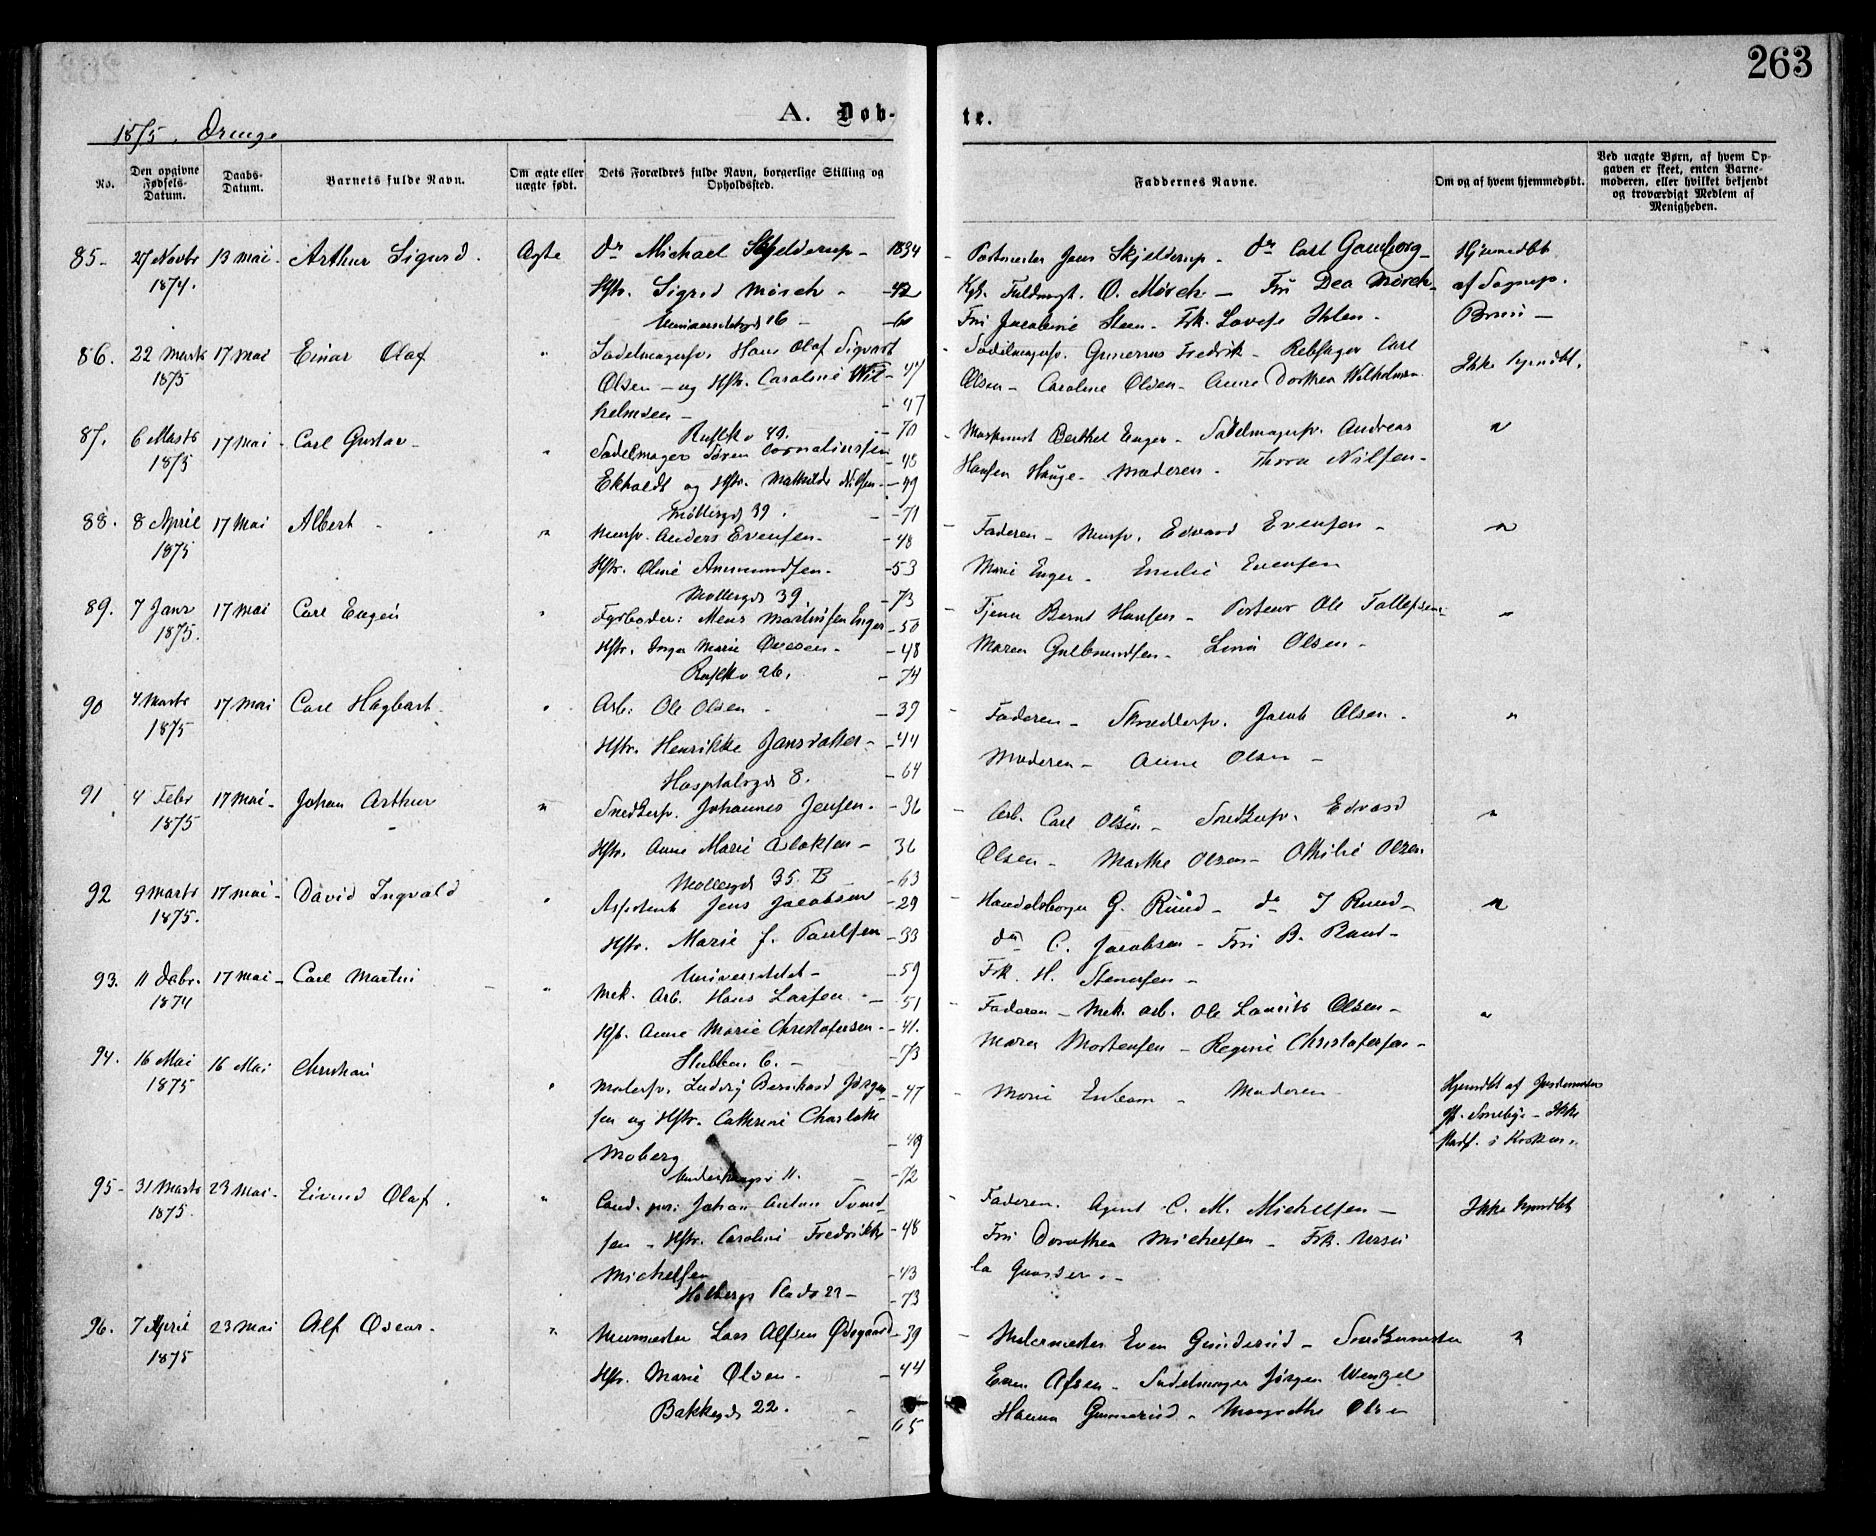 263
A. Døb-
te.
1875. Drenge
No.
Den opgivne Fødsels-Datum.
Daabs-Datum.
Barnets fulde Navn.
Om ægte eller uægte født.
Dets Forældres fulde Navn, borgerlige Stilling og Opholdssted.
Faddernes Navne.
Om og af hvem hjemmedøbt.
Ved uægte Børn, af hvem Op-
gaven er skeet, enten Barne-
moderen, eller hvilket bekjendt
og troværdigt Medlem af
Menigheden.
85- 27 Novbr 13 Mai- Arthur Sigurd. Ægte Dr Michael Skjelderup- 1834 - Postmester Jens Skjelderup- Dr Carl Gamborg- Hjemmedbt
1874. Hstr. Sigrid Mørch- -42 Kgl. Fuldmgt. O. Mørch- Fru Dea Mørch- af Sognep.
16 - Fru Jacobine Steen- Frk. Lovise Ihlen- Bruun-
86. 22 Marts 17 Mai Einar Olaf " Sadelmagersv. Hans Olaf Sigvart - Sadelmagersv. Gunerius Fredrik- Rebslager Carl
1875 Olsen- og Hstr. Caroline Wil- -47 Olsen- Caroline Olsen- Anne Dorthea Wilhelmsen Ikke hjmdbt.
helmsen- -47
Rustkv 49. -70
87. 6 Marts 17 Mai- Carl Gustav- " Sadelmager Søren Corneliussen -48 - Maskinist Berthel Enger- Sadelmagersv. Andreas "
1875 Ekholdt og Hstr. Mathilde Nilsen- -49 Hansen Hauge- Moderen- Thora Nilsen-
Møllergd 39. -71
88. 8 April 17 Mai Albert- " Mursv. Anders Evensen- -48 - Faderen- Mursv. Edvard Evensen- "
1875 Hstr. Oline Ammundsen- -53 Marie Enger- Emilie Evensen
Møllergd 39 -73
89. 7 Janr 17 Mai Carl Eugen " Fyrbøder: Mens Martinsen Enger -50 - Tjener Bernt Hansen- Porteur Ole Tollefsen- "
1875. Hstr. Inger Marie Ovesen- -48 Maren Gulbrandsen- Lina Olsen-
Rustkv 26. -74
90 4 Marts 17 Mai Carl Hagbart- " Arb: Ole Olsen- -39 - Faderen- Skreddersv. Jacob Olsen- "
1875 Hstr. Henrikke Jansdatter- -44 Moderen- Anne Olsen-
Hospitalsgd 8. -64
91 4 Febr 17 Mai- Johan Arthur " Snedkersv. Johannes Jensen- -36 - Arb. Carl Olsen- Snedkersv. Edvard "
1875 Hstr. Anne Marie Aslaksen- 36 Olsen- Marthe Olsen- Othilie Olsen
Møllergd 35. B -63
92 9 Marts 17 Mai- David Ingvald " Assistent Jens Jacobsen -29 - Handelsborger G. Ruud- do J Ruud- "
1875. Hstr. Marie J. Paulsen -33 do C. Jacobsen- Fru B. Ruud-
Universitetet- -59 Frk. H. Stenersen-
93. 11 Debr. 17 Mai- Carl Martin " Mek. Arb. Hans Larsen- -51 - Faderen- Mek. arb. Ole Laurits Olsen- "
1874 Hst. Anne Marie Christofersen- -41. Maren Mortensen- Regine Christofersen-
Stubben 6.- -73
94. 16 Mai 16 Mai Christian " Malersv. Ludvig Bernhard Jørgen- -47 - Marie - Moderen Hjemdbt af Jordemoder
1875 sen og Hstr. Cathrine Charlotte - Ikke
Moberg -49 Stadf. i Kirken.
11. -72
95- 31 Marts 23 Mai- Eivind Olaf. " Cand. jur: Johan Anton Svend- - Faderen. Agent C. M. Michelsen- Ikke hjmdbt
1875. sen- Hstr. Caroline Fredrikke -48 Fru Dorothea Michelsen- Frk. Ursu
Michelsen -43 la
Holbergs Plads 22- -73
96. 7 April 23 Mai Alf Oscar- " Murmester Lars Alfsen Ødegaard -39 - Malermester Even Gunderud- Snedkermester "
1875 Hstr. Marie Olsen- -44 Even Alfsen- Sadelmager Jørgen Wenzel
Bakkegd 22. 65 Hanna - Margrethe Olsen